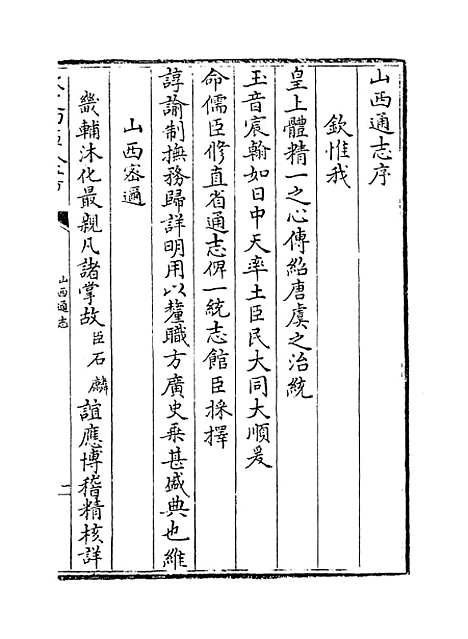 山西通志序
欽惟我
皇上體精一之心傳紹唐虞之治統
玉音宸翰如日中天率土臣民大同大順爰
命儒臣修直省通志俾一統志館臣採擇
諄諭制撫務歸詳明用以釐職方廣史乘甚盛典也維
山西密邇
畿輔沐化最親凡諸掌故臣石麟誼應博稽精核詳
山西通志
二